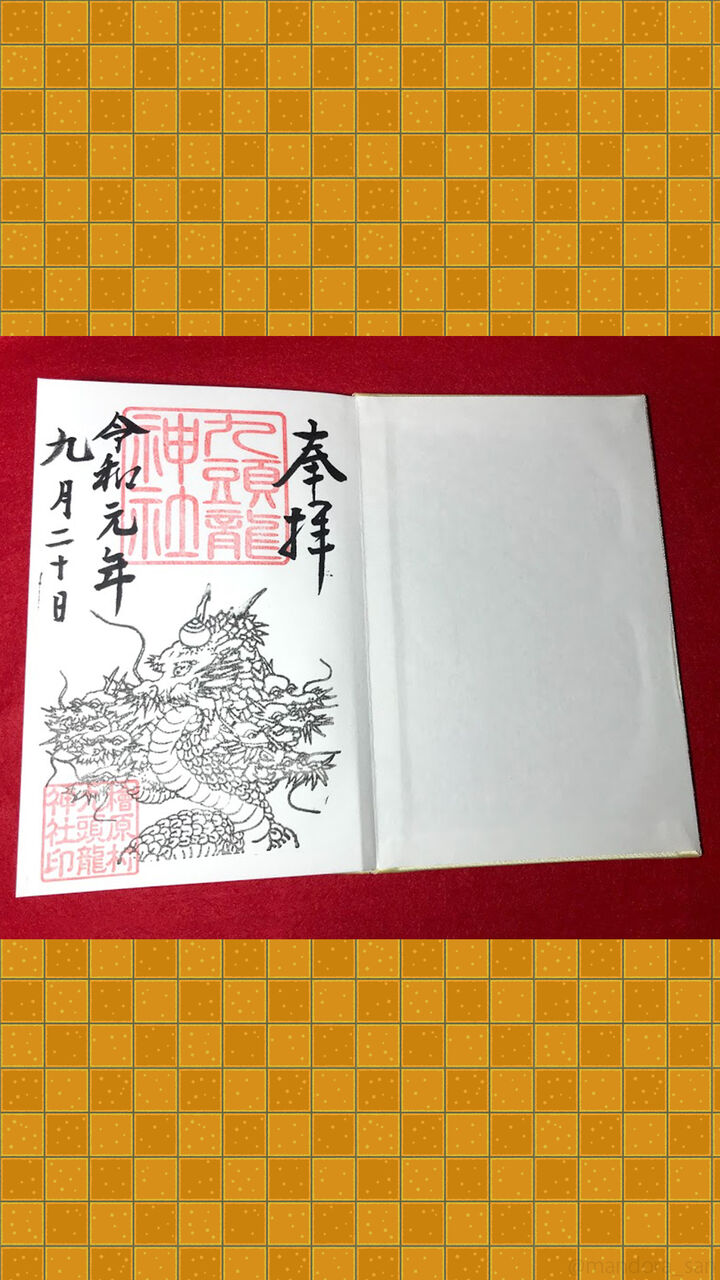 奉拝
九頭龍
神社
令和元年
九月二十日
檜原村
九頭龍
神社印
@mandora_san